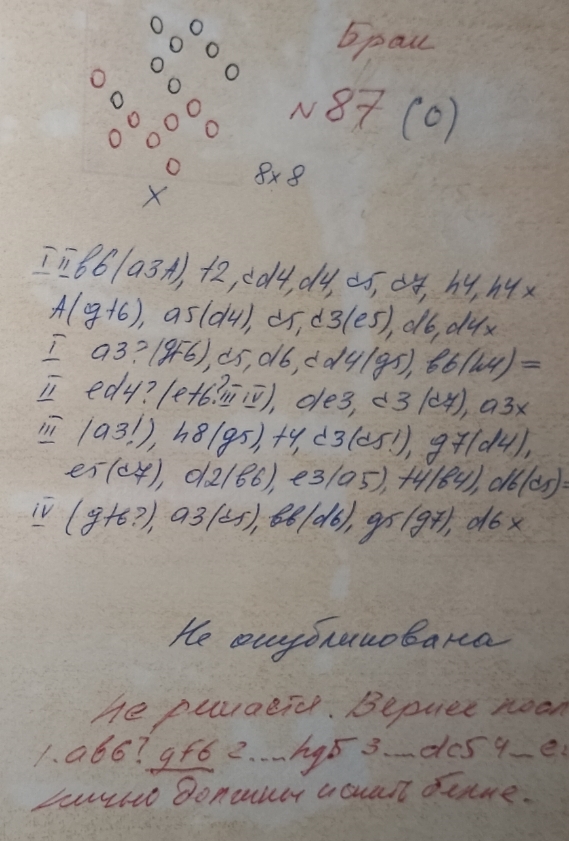 Брак
№ 87 (0)
8x8
X
I II вб6(а3А), f2, cd4, d4, c5, c7, h4, h4x
А(gf6), а5(d4), c5, c3(e5), d6, d4x
I а3?(gf6), c5, d6, cd4(g5), вб(h4)=
II ed4?(ef6? III IV), de3, c3(c7), а3x
III (а3!), h8(g5), f4, c3(c5!), g7(d4),
e5(c7), d2(в6), e3(а5), f4(в4), d6(c5)=
IV (gf6?), а3(c5), вб(d6), g5(g7), d6x
Не опубликована
Не решается. Вернее
1. ав6? gf6 2... hg5 3... dc5 4...
должны искать белые.